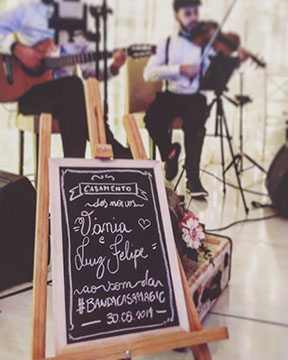 CASAMENTO
dos noivos
Vânia
e
Luiz Felipe
ao som da
#BANDACASAMAGIC
30.08.2019